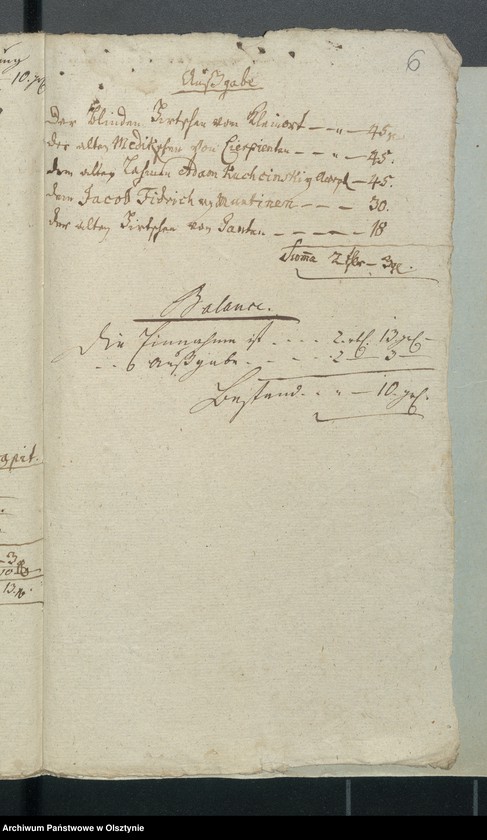 ung
10. gl.
6
Außgabe
Der blinden Zirtschen von Kleinort — — " — 45 gr.
der alten Medikschen von Cierpienten — — " — 45.
dem alten Lahmen Adam Kuchcinski — 45.
dem Jacob Fidrich Muntinen — — — 30.
der alten Zirtschen von Janten — — — — 18
Suma 2 — 3 gr.
Balance.
Die Einnahme ist . . . . 2 rtl. 13 gl. —
. . Außgabe . . . . . 2 3 —
Bestand . . " — 10. gl.
apit.
3
10
13. gr.
Archiwum Państwowe w Olsztynie